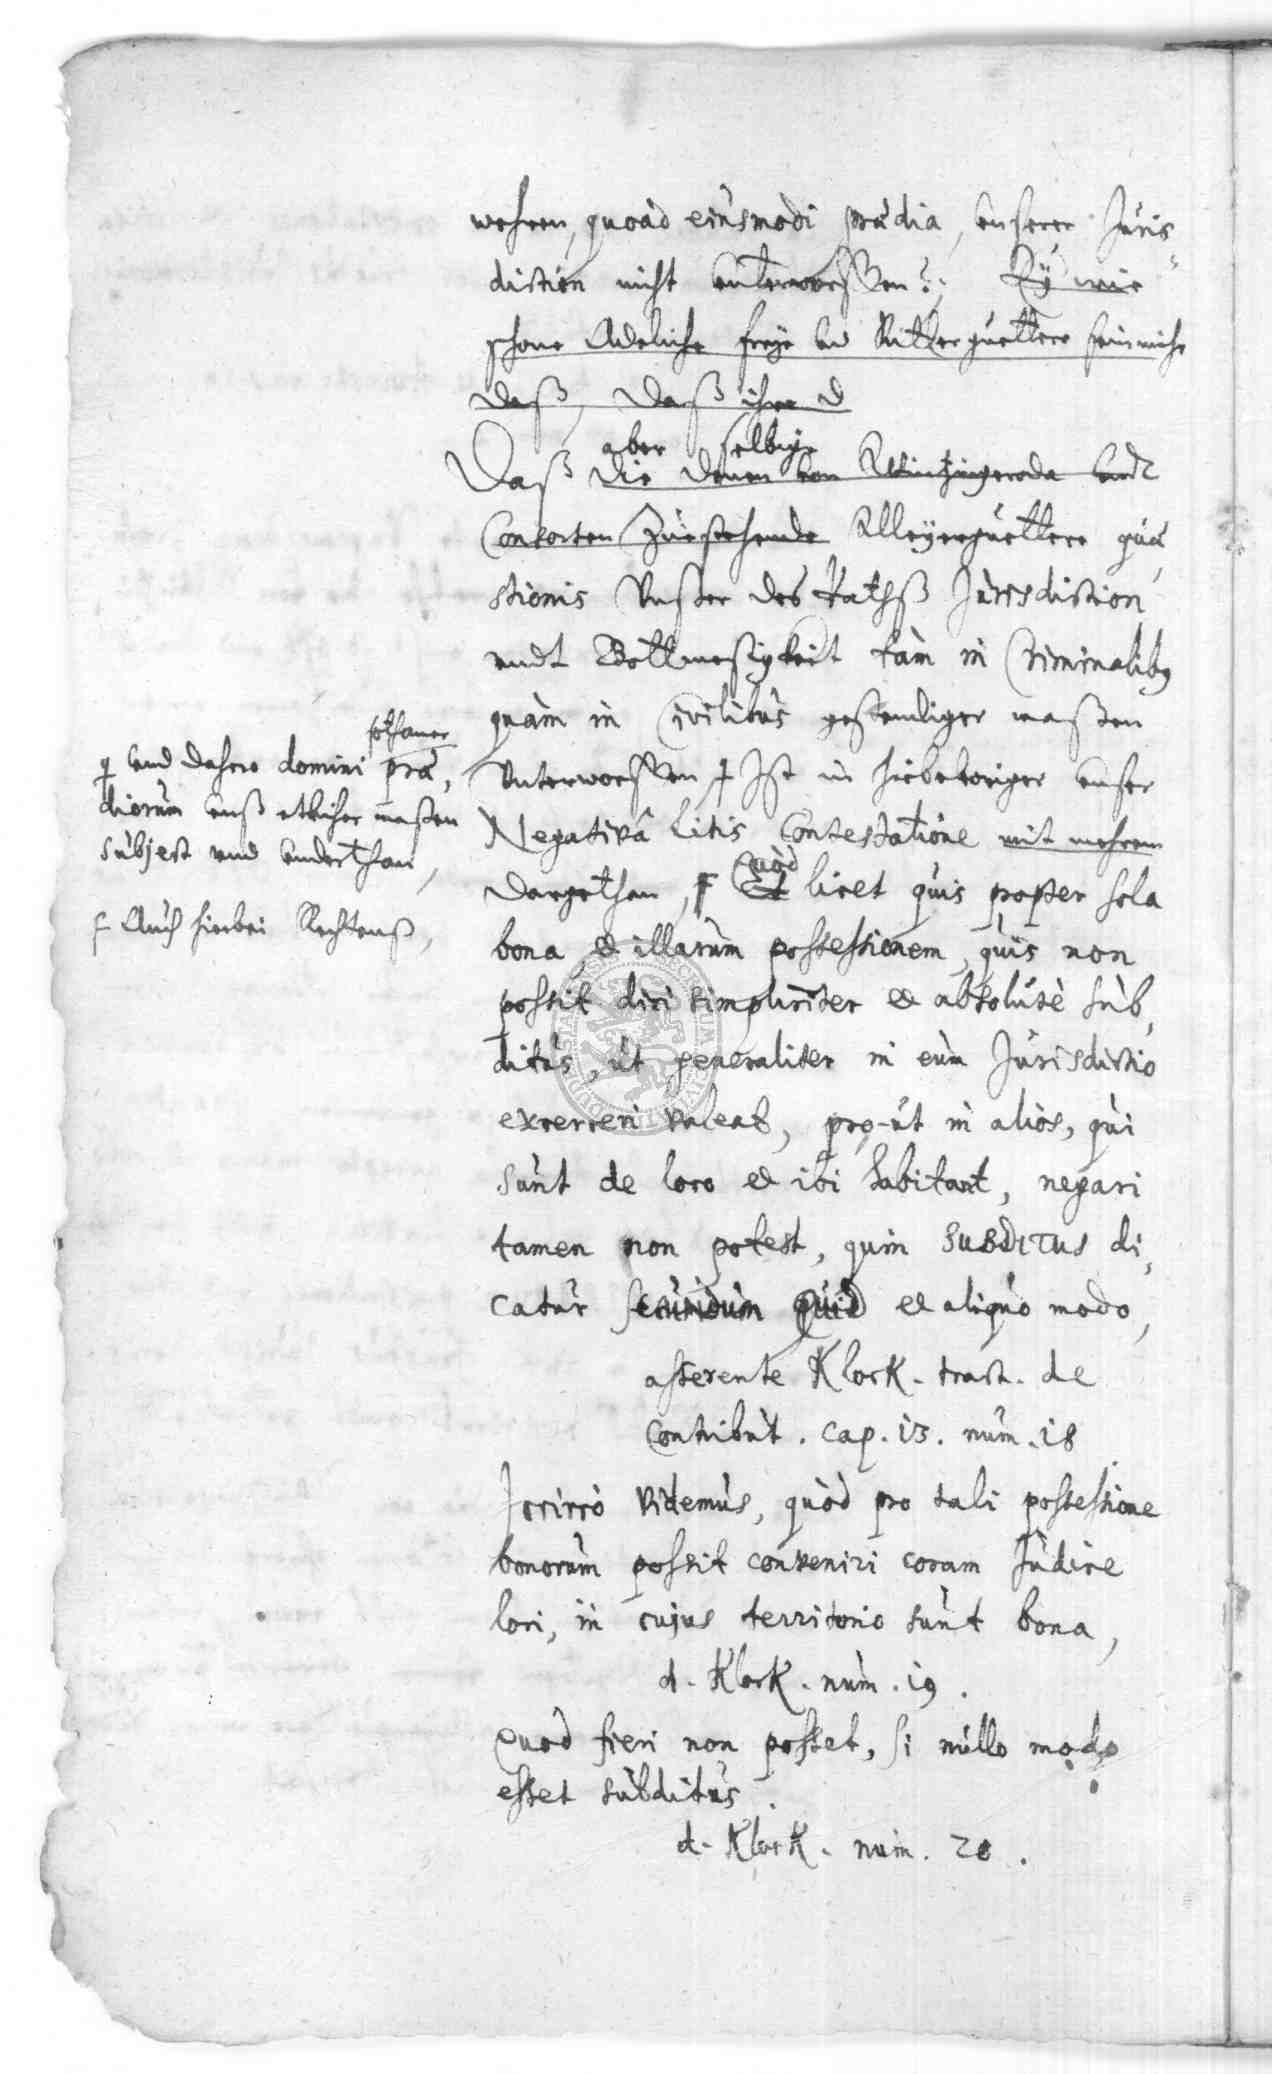 wehren, quoad eiusmodi prædia, unserer Juris
diction nicht unterworffen?; Ey wie
schone Adeliche freye und Ritterguettere sein mihr
daß, daß ihre d
aber selbige
Daß die denen von Wintzingeroda undt
Consorten zustehende Alleyerguettere quæ
stionis Unser des Rathß Jurisdiction
undt Bottmesigkeit tàm in Criminalibus
quàm in Civilibus gestendiger maßen
Unterworffen Ist in hiebevoriger unser
Negativâ Litis Contestatione mit mehrem
dargethan, Quòd Et licet quis propter sola
bona, & illarum possessionem, quis non
possit dici simpliciter & absolutè sub,
ditus, ut generaliter in eum Jurisdictio
exerceri valeat, pro-ut in alios, qui
sunt de loco & ibi habitant, negari
tamen non potest, quin SUBDITUS di,
catur secundum quid & aliquo modo,
asserente Klock. tract. de
Contribut. cap. 13. num. 18
Icciccò videmus, quòd pro tali possessione
bonorum possit conveniri coram Judice
loci, in cujus territorio sunt bona,
d. Klock. num. 19.
Quod fieri non posset, si nullo modo
esset subditus.
d. Klock. num. 20.
sothaner
und dahero domini præ,
diorum auß etlicher maßen
subject und underthan,
Auch hierbei Rechtenß,